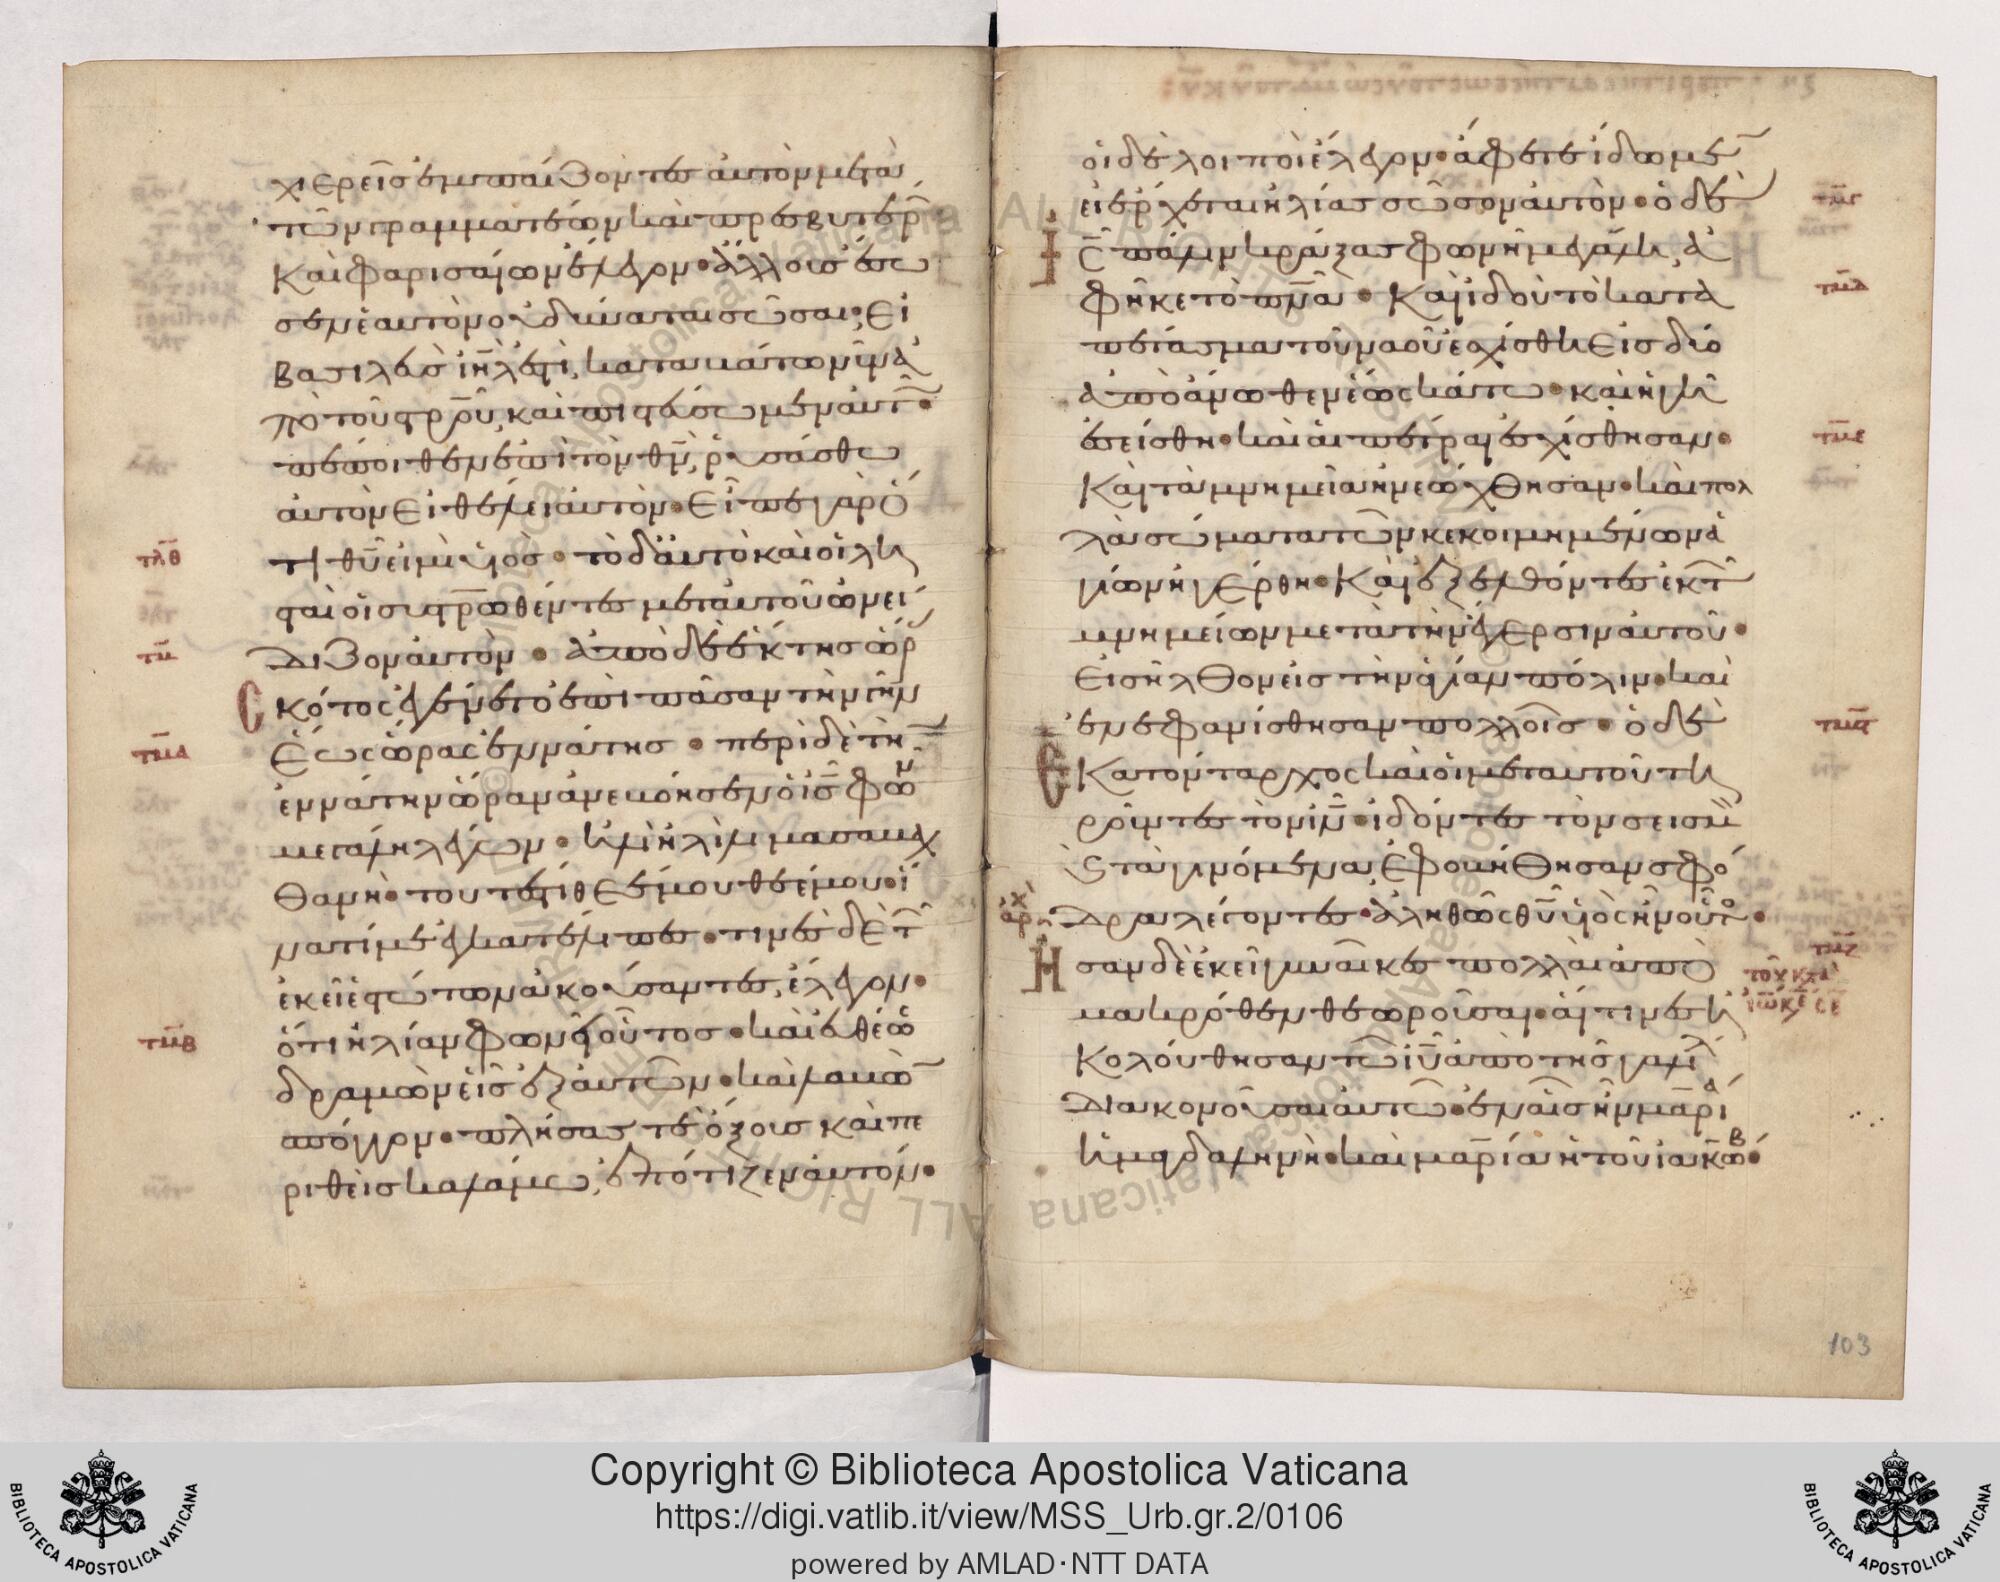 χιερεῖς ἐμπαίζοντες αὐτὸν μετὰ
τῶν γραμματέων καὶ πρεσβυτέρ
καὶ φαρισαίων ἔλεγον· ἄλλους ἔσω
σεν ἑαυτὸν οὐ δύναται σῶσαι, εἰ
βασιλεὺς ιη̅λ ἐστὶ, καταβάτω νῦν ἀ
πὸ τοῦ στρ̅ου, καὶ πιστεύσωμεν αὐτ
πέποιθεν ἐπὶ τὸν θν̅, ῥυσάσθω
αὐτὸν εἰ θέλει αὐτόν· εἶπε γὰρ ὅ
τλθ
τι θυ̅ εἰμὶ υἱός· τὸ δ' αὐτὸ καὶ οἱ λη
σταὶ οἱ συστρωθέντες μετ' αὐτοῦ ὠνεί
τμ
διζον αὐτόν· ἀπὸ δὲ ἕκτης ὥρ
σκότος ἐγένετο ἐπὶ πᾶσαν τὴν γῆν
τμα
ἕως ὥρας ἐννάτης· περὶ δὲ τὴ
ἐννάτην ὥραν ἀνεβόησεν ὁ ις̅ φων
μεγάλη λέγων· ἠλὶ ἠλὶ λιμὰ σαβαχ
θανή· τουτέστι θεέ μου θεέ μου· ἱ
νατί με ἐγκατέλιπες· τινὲς δὲ τ
ἐκεῖ ἑστώτων ἀκούσαντες, ἔλεγον·
τμβ
ὅτι ἠλίαν φωνεῖ οὗτος· καὶ εὐθέω
δραμὼν εἷς ἐξ αὐτῶν· καὶ λαβὼ
σπόγγον· πλήσας τε ὄξους καὶ πε
ριθεὶς καλάμω, ἐπότιζεν αὐτόν·
οἱ δὲ λοιποὶ ἔλεγον· ἄφες ἴδωμε
τμγ
εἰ ἔρχεται ἠλίας σῶσον αὐτόν· ὁ δὲ
ις̅ πάλιν κράξας φωνῆ μεγάλη, ἀ
τμδ
φῆκε τὸ πνα̅· καὶ ἰδοὺ τὸ κατα
πέτασμα τοῦ ναοῦ ἐσχίσθη εἰς δύο
ἀπὸ ἄνωθεν ἕως κάτω· καὶ ἡ γῆ
τμε
ἐσείσθη· καὶ αἱ πέτραι ἐσχίσθησαν·
καὶ τὰ μνημεῖα ἠνεώχθησαν· καὶ πολ
λὰ σώματα τῶν κεκοιμημένων ἁ
γίων ἠγέρθη· καὶ ἐξελθόντες ἐκ τ
μνημείων μετὰ τὴν ἔγερσιν αὐτοῦ·
εἰσῆλθον εἰς τὴν ἁγίαν πόλιν· καὶ
τμϛ
ἐνεφανίσθησαν πολλοῖς· ὁ δὲ
ἑκατόνταρχος καὶ οἱ μετ' αὐτοῦ τη
ροῦντες τὸν ιν̅· ἰδόντες τὸν σεισμ
ϗ τὰ γενόμενα, ἐφοβήθησαν σφό
δρα λέγοντες· ἀληθῶς θυ̅ υἱὸς ἦν οὗτος·
τμζ
ἦσαν δὲ ἐκεῖ γυναῖκες πολλαὶ ἀπὸ
μακρόθεν θεωροῦσαι· αἵτινες ἠ
κολούθησαν τῶ ιυ̅ ἀπὸ τῆς γαλιλ
διακονοῦσαι αὐτῶ· ἐν αἷς ἦν μαρία
ἡ μαγδαληνὴ· καὶ μαρία ἡ τοῦ ἰακώβ·
103
Copyright © Biblioteca Apostolica Vaticana
https://digi.vatlib.it/view/MSS_Urb.gr.2/0106
powered by AMLAD·NTT DATA
BIBLIOTECA APOSTOLICA VATICANA
BIBLIOTECA APOSTOLICA VATICANA